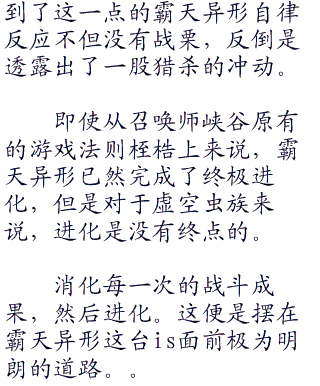 到了这一点的霸天异形自律
反应不但没有战栗，反倒是
透露出了一股猎杀的冲动。
即使从召唤师峡谷原有
的游戏法则桎梏上来说，霸
天异形已然完成了终极进
化，但是对于虚空虫族来
说，进化是没有终点的。
消化每一次的战斗成
果，然后进化。这便是摆在
霸天异形这台is面前极为明
朗的道路。。